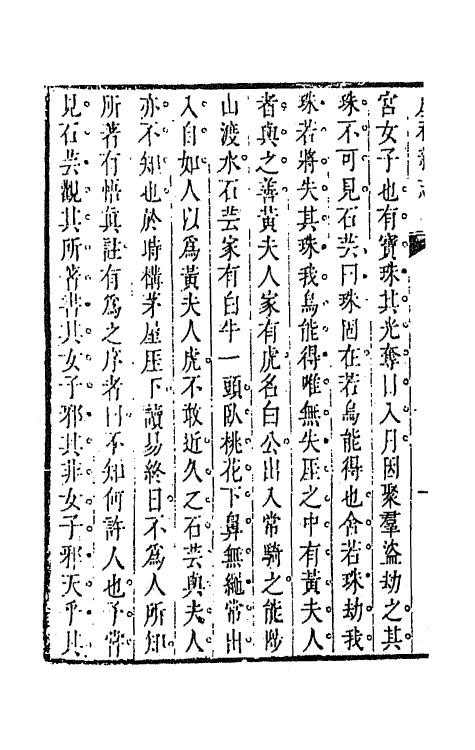 宮女子也有寶珠其光奪日入月因聚羣盜劫之其
珠不可見石芸曰珠固在若烏能得也舍若珠劫我
珠若將失其珠我烏能得唯無失厓之中有黃夫人
者與之善黃夫人家有虎名白公出入常騎之能
山渡水石芸家有白牛一頭臥桃花下鼻無繩常出
入自如人以爲黃夫人虎不敢近久之石芸與夫人
亦不知也於時構茅屋厓下讀易終日不爲人所知
所著有悟眞註有爲之序者曰不知何許人也予嘗
見石芸觀其所著書其女子邪其非女子邪天乎其